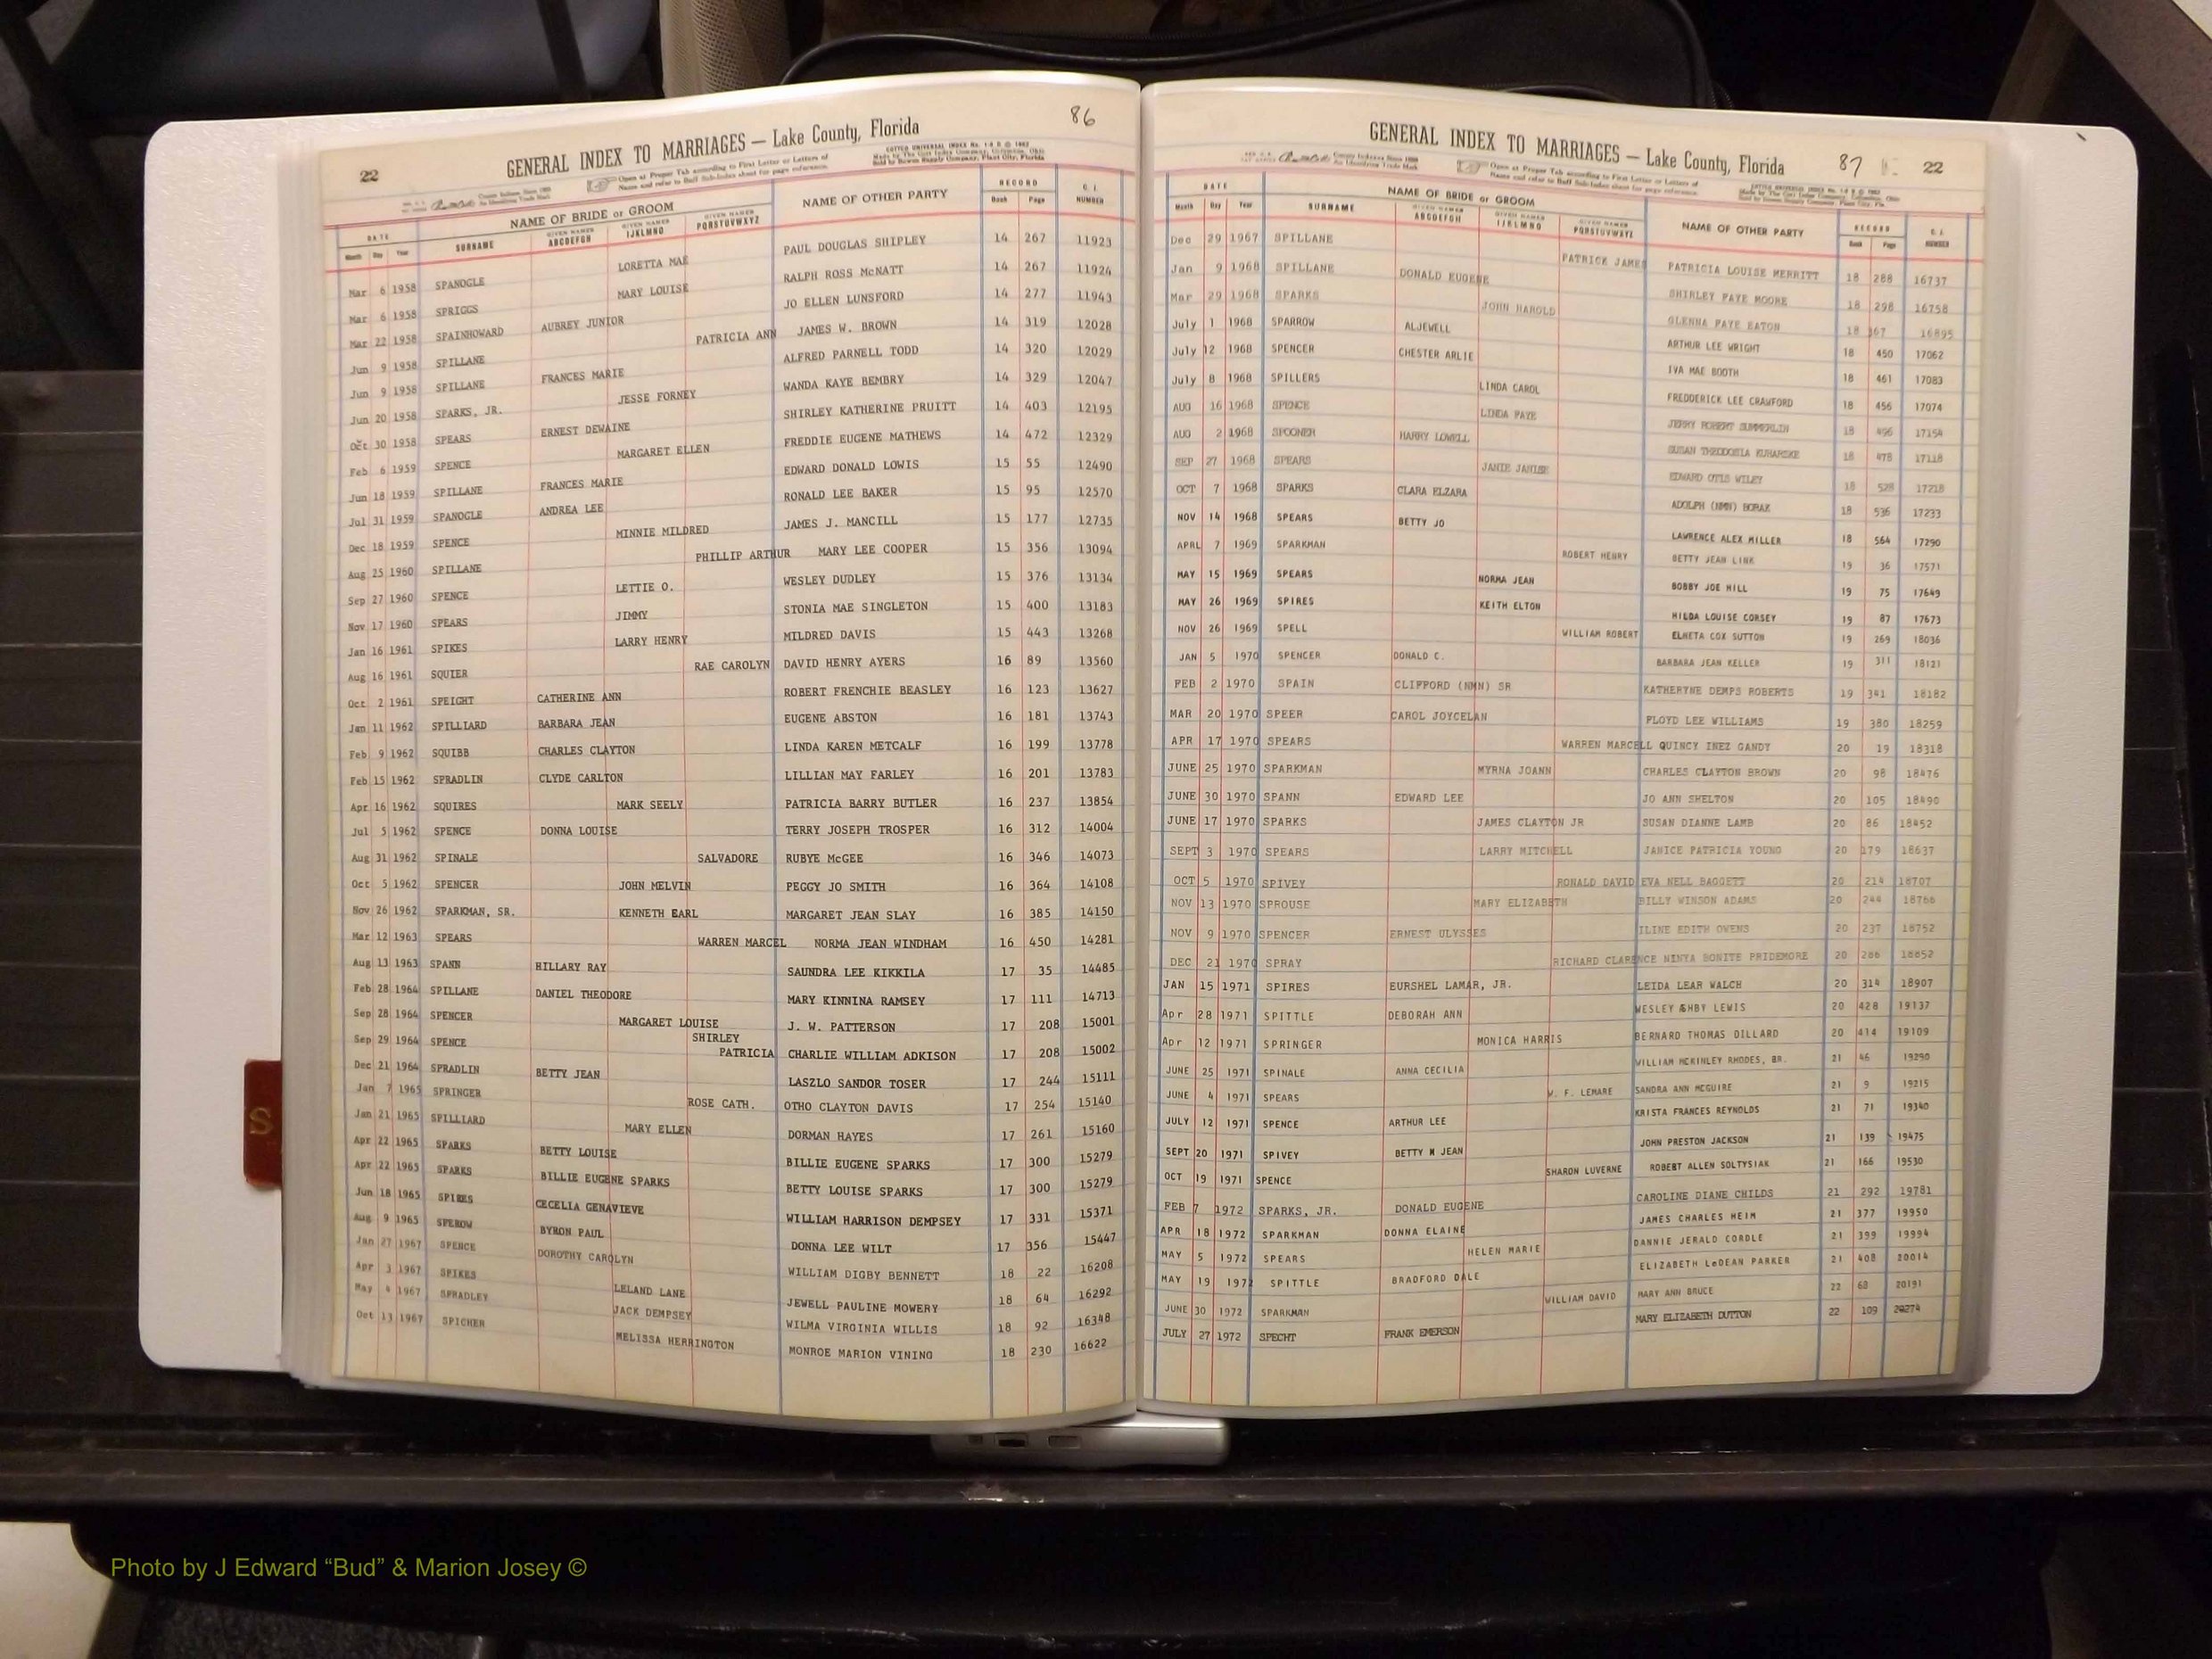 86
22 GENERAL INDEX TO MARRIAGES — Lake County, Florida
Open at Proper Tab according to First Letter or Letters of
Name and refer to Buff Sub-Index sheet for page reference.
DATE NAME OF BRIDE or GROOM NAME OF OTHER PARTY RECORD C. I. NUMBER
Month Day Year SURNAME GIVEN NAMES ABCDEFGH GIVEN NAMES IJKLMNO GIVEN NAMES PQRSTUVWXYZ Book Page
Mar 6 1958 SPANOGLE LORETTA MAE PAUL DOUGLAS SHIPLEY 14 267 11923
Mar 6 1958 SPRIGGS MARY LOUISE RALPH ROSS McNATT 14 267 11924
Mar 22 1958 SPAINHOWARD AUBREY JUNIOR JO ELLEN LUNSFORD 14 277 11943
Jun 9 1958 SPILLANE PATRICIA ANN JAMES W. BROWN 14 319 12028
Jun 9 1958 SPILLANE FRANCES MARIE ALFRED PARNELL TODD 14 320 12029
Jun 20 1958 SPARKS, JR. JESSE FORNEY WANDA KAYE BEMBRY 14 329 12047
Oct 30 1958 SPEARS ERNEST DEWAINE SHIRLEY KATHERINE PRUITT 14 403 12195
Feb 6 1959 SPENCE MARGARET ELLEN FREDDIE EUGENE MATHEWS 14 472 12329
Jun 18 1959 SPILLANE FRANCES MARIE EDWARD DONALD LOWIS 15 55 12490
Jul 31 1959 SPANOGLE ANDREA LEE RONALD LEE BAKER 15 95 12570
Dec 18 1959 SPENCE MINNIE MILDRED JAMES J. MANCILL 15 177 12735
Aug 25 1960 SPILLANE PHILLIP ARTHUR MARY LEE COOPER 15 356 13094
Sep 27 1960 SPENCE LETTIE O. WESLEY DUDLEY 15 376 13134
Nov 17 1960 SPEARS JIMMY STONIA MAE SINGLETON 15 400 13183
Jan 16 1961 SPIKES LARRY HENRY MILDRED DAVIS 15 443 13268
Aug 16 1961 SQUIER RAE CAROLYN DAVID HENRY AYERS 16 89 13560
Oct 2 1961 SPEIGHT CATHERINE ANN ROBERT FRENCHIE BEASLEY 16 123 13627
Jan 11 1962 SPILLIARD BARBARA JEAN EUGENE ABSTON 16 181 13743
Feb 9 1962 SQUIBB CHARLES CLAYTON LINDA KAREN METCALF 16 199 13778
Feb 15 1962 SPRADLIN CLYDE CARLTON LILLIAN MAY FARLEY 16 201 13783
Apr 16 1962 SQUIRES MARK SEELY PATRICIA BARRY BUTLER 16 237 13854
Jul 5 1962 SPENCE DONNA LOUISE TERRY JOSEPH TROSPER 16 312 14004
Aug 31 1962 SPINALE SALVADORE RUBYE McGEE 16 346 14073
Oct 5 1962 SPENCER JOHN MELVIN PEGGY JO SMITH 16 364 14108
Nov 26 1962 SPARKMAN, SR. KENNETH EARL MARGARET JEAN SLAY 16 385 14150
Mar 12 1963 SPEARS WARREN MARCEL NORMA JEAN WINDHAM 16 450 14281
Aug 13 1963 SPANN HILLARY RAY SAUNDRA LEE KIKKILA 17 35 14485
Feb 28 1964 SPILLANE DANIEL THEODORE MARY KINNINA RAMSEY 17 111 14713
Sep 28 1964 SPENCER MARGARET LOUISE J. W. PATTERSON 17 208 15001
Sep 29 1964 SPENCE SHIRLEY PATRICIA CHARLIE WILLIAM ADKISON 17 208 15002
Dec 21 1964 SPRADLIN BETTY JEAN LASZLO SANDOR TOSER 17 244 15111
Jan 7 1965 SPRINGER ROSE CATH. OTHO CLAYTON DAVIS 17 254 15140
Jan 21 1965 SPILLIARD MARY ELLEN DORMAN HAYES 17 261 15160
Apr 22 1965 SPARKS BETTY LOUISE BILLIE EUGENE SPARKS 17 300 15279
Apr 22 1965 SPARKS BILLIE EUGENE SPARKS BETTY LOUISE SPARKS 17 300 15279
Jun 18 1965 SPIRES CECELIA GENAVIEVE WILLIAM HARRISON DEMPSEY 17 331 15371
Aug 9 1965 SPEROW BYRON PAUL DONNA LEE WILT 17 356 15447
Jan 27 1967 SPENCE DOROTHY CAROLYN WILLIAM DIGBY BENNETT 18 22 16208
Apr 3 1967 SPIKES LELAND LANE JEWELL PAULINE MOWERY 18 64 16292
May 4 1967 SPRADLEY JACK DEMPSEY WILMA VIRGINIA WILLIS 18 92 16348
Oct 13 1967 SPICHER MELISSA HERRINGTON MONROE MARION VINING 18 230 16622
S
GENERAL INDEX TO MARRIAGES — Lake County, Florida 87 22
Open at Proper Tab according to First Letter or Letters of
Name and refer to Buff Sub-Index sheet for page reference.
DATE NAME OF BRIDE or GROOM NAME OF OTHER PARTY RECORD C. I. NUMBER
Month Day Year SURNAME GIVEN NAMES ABCDEFGH GIVEN NAMES IJKLMNO GIVEN NAMES PQRSTUVWXYZ Book Page
Dec 29 1967 SPILLANE PATRICK JAMES PATRICIA LOUISE MERRITT 18 288 16737
Jan 9 1968 SPILLANE DONALD EUGENE SHIRLEY FAYE MOORE 18 298 16758
Mar 29 1968 SPARKS JOHN HAROLD GLENNA FAYE EATON 18 367 16895
July 1 1968 SPARROW ALJEWELL ARTHUR LEE WRIGHT 18 450 17062
July 12 1968 SPENCER CHESTER ARLIE IVA MAE BOOTH 18 461 17083
July 8 1968 SPILLERS LINDA CAROL FREDDERICK LEE CRAWFORD 18 456 17074
AUG 16 1968 SPENCE LINDA FAYE JERRY ROBERT SUMMERLIN 18 496 17154
AUG 2 1968 SPOONER HARRY LOWELL SUSAN THEODOSIA KUHARSKE 18 478 17118
SEP 27 1968 SPEARS JANIE JANISE EDWARD OTIS WILEY 18 528 17218
OCT 7 1968 SPARKS CLARA ELZARA ADOLPH (NMN) BORAK 18 536 17233
NOV 14 1968 SPEARS BETTY JO LAWRENCE ALEX MILLER 18 564 17290
APRL 7 1969 SPARKMAN ROBERT HENRY BETTY JEAN LINK 19 36 17571
MAY 15 1969 SPEARS NORMA JEAN BOBBY JOE HILL 19 75 17649
MAY 26 1969 SPIRES KEITH ELTON HILDA LOUISE CORSEY 19 87 17673
NOV 26 1969 SPELL WILLIAM ROBERT ELHETA COX SUTTON 19 269 18036
JAN 5 1970 SPENCER DONALD C. BARBARA JEAN KELLER 19 311 18121
FEB 2 1970 SPAIN CLIFFORD (NMN) SR KATHERYNE DEMPS ROBERTS 19 341 18182
MAR 20 1970 SPEER CAROL JOYCELAN FLOYD LEE WILLIAMS 19 380 18259
APR 17 1970 SPEARS WARREN MARCELL QUINCY INEZ GANDY 20 19 18318
JUNE 25 1970 SPARKMAN MYRNA JOANN CHARLES CLAYTON BROWN 20 98 18476
JUNE 30 1970 SPANN EDWARD LEE JO ANN SHELTON 20 105 18490
JUNE 17 1970 SPARKS JAMES CLAYTON JR SUSAN DIANNE LAMB 20 86 18452
SEPT 3 1970 SPEARS LARRY MITCHELL JANICE PATRICIA YOUNG 20 179 18637
OCT 5 1970 SPIVEY RONALD DAVID EVA NELL BAGGETT 20 214 18707
NOV 13 1970 SPROUSE MARY ELIZABETH BILLY WINSON ADAMS 20 244 18766
NOV 9 1970 SPENCER ERNEST ULYSSES ILINE EDITH OWENS 20 237 18752
DEC 21 1970 SPRAY RICHARD CLARENCE NINYA BONITE PRIDEMORE 20 286 18852
JAN 15 1971 SPIRES EURSHEL LAMAR, JR. LEIDA LEAR WALCH 20 314 18907
Apr 28 1971 SPITTLE DEBORAH ANN WESLEY ASHBY LEWIS 20 428 19137
Apr 12 1971 SPRINGER MONICA HARRIS BERNARD THOMAS DILLARD 20 414 19109
JUNE 25 1971 SPINALE ANNA CECILIA WILLIAM MCKINLEY RHODES, SR. 21 46 19290
JUNE 4 1971 SPEARS W. F. LEMARE SANDRA ANN MCGUIRE 21 9 19215
JULY 12 1971 SPENCE ARTHUR LEE KRISTA FRANCES REYNOLDS 21 71 19340
SEPT 20 1971 SPIVEY BETTY M JEAN JOHN PRESTON JACKSON 21 139 19475
OCT 19 1971 SPENCE SHARON LUVERNE ROBERT ALLEN SOLTYSIAK 21 166 19530
FEB 7 1972 SPARKS, JR. DONALD EUGENE CAROLINE DIANE CHILDS 21 292 19781
APR 18 1972 SPARKMAN DONNA ELAINE JAMES CHARLES HEIM 21 377 19950
MAY 5 1972 SPEARS HELEN MARIE DANNIE JERALD CORDLE 21 399 19994
MAY 19 1972 SPITTLE BRADFORD DALE ELIZABETH LeDEAN PARKER 21 408 20014
JUNE 30 1972 SPARKMAN WILLIAM DAVID MARY ANN BRUCE 22 68 20191
JULY 27 1972 SPECHT FRANK EMERSON MARY ELIZABETH DUTTON 22 109 20274
Photo by J Edward “Bud” & Marion Josey ©